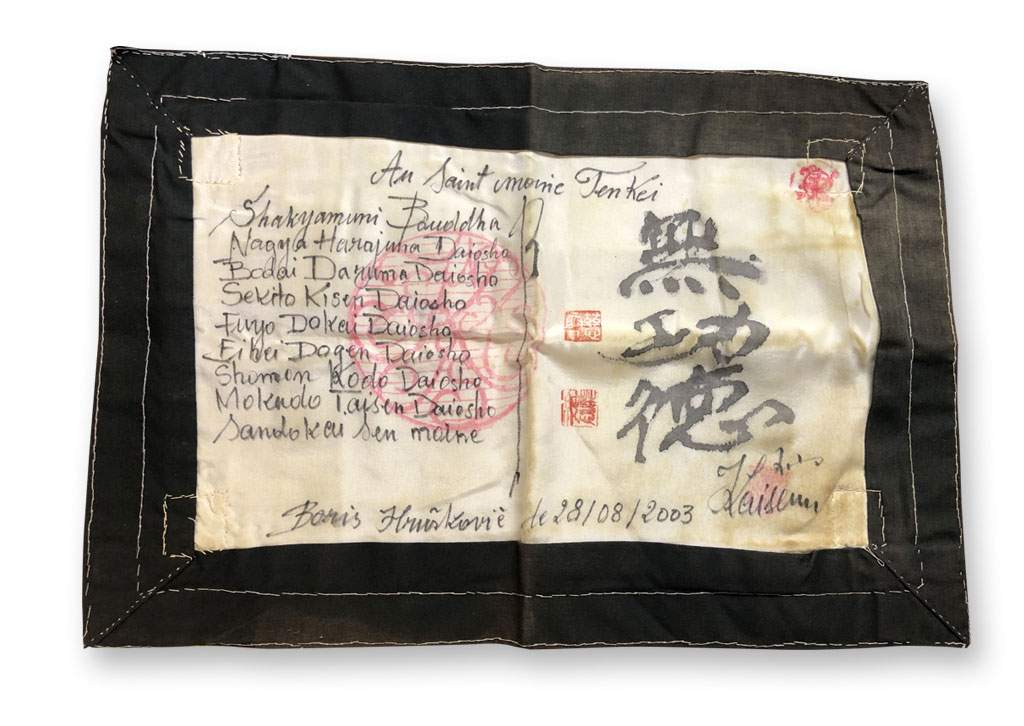 Au Saint moine TenKei
Shakyamuni Bouddha
Nagya Harajuna Daiosho
Bodai Daruma Daiosho
Sekito Kisen Daiosho
Fuyo Dokai Daiosho
Eihei Dogen Daiosho
Shomon Kodo Daiosho
Mokudo Taisen Daiosho
Sandokai Sen moine
無
工功
德
Kaisen
Boris Hruškovič le 28/08/2003